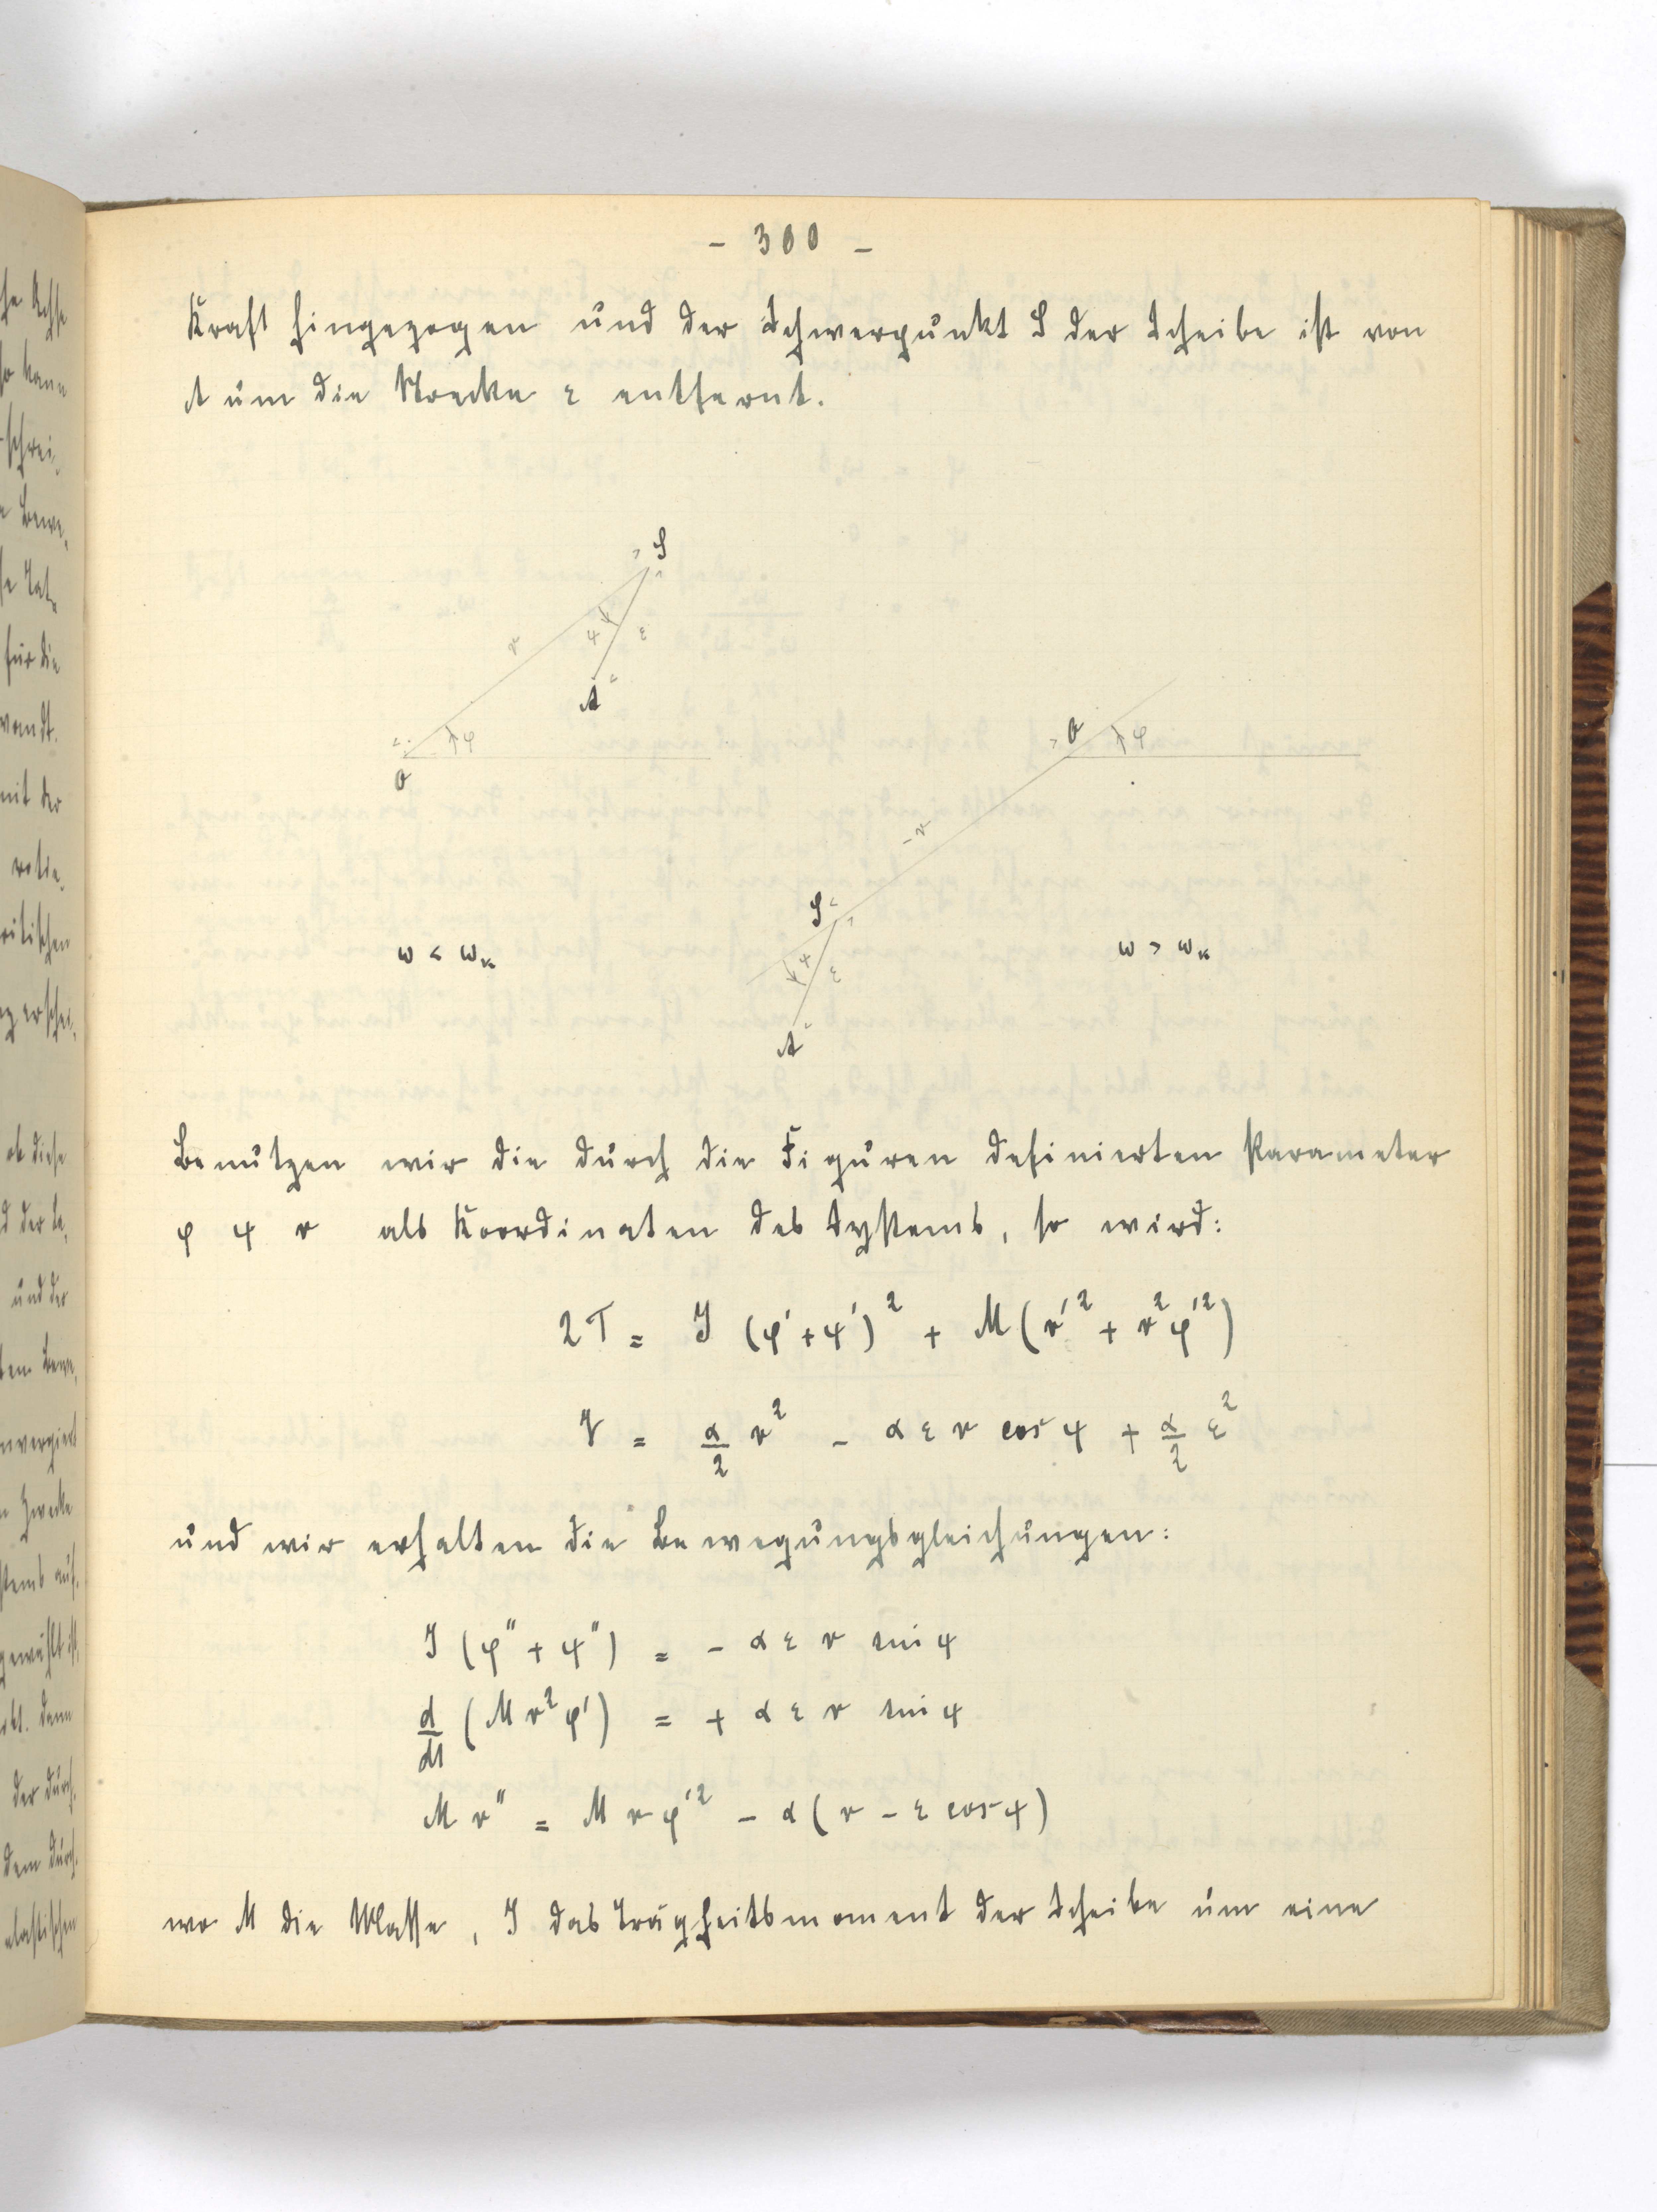 - 300 -
Kraft hingezogen und der Schwerpunkt S der Scheibe ist von
A um die Strecke ε entfernt.
S
r ψ ε
A
O φ
O φ
-r
S
ψ ε
A
ω < ωₖ
ω > ωₖ
Benutzen wir die durch die Figuren definierten Parameter
φ ψ r als Koordinaten des Systems, so wird:
2T = J (φ' + ψ')² + M (r'² + r² φ'²)
V = α/2 r² - α ε r cos ψ + α/2 ε²
und wir erhalten die Bewegungsgleichungen:
J (φ'' + ψ'') = - α ε r sin ψ
d/dt (M r² φ') = + α ε r sin ψ
M r'' = M r φ'² - α (r - ε cos ψ)
wo M die Masse, J das Trägheitsmoment der Scheibe um eine